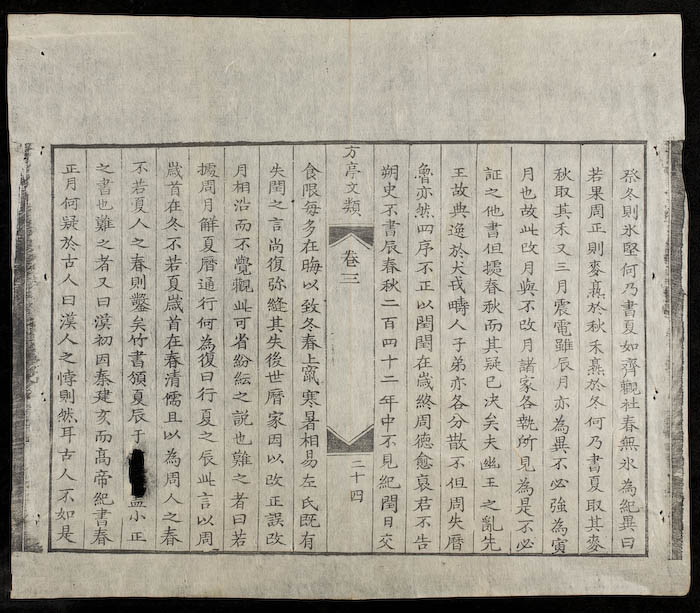 癸冬則氷堅何乃書夏如齊觀社春無氷為紀異曰
若果周正則麥熹於秋禾熹於冬何乃書夏取其麥
秋取其禾又三月震電雖辰月亦為異不必強為寅
月也故此改月與不改月諸家各執所見為是不必
証之他書但據春秋而其疑已决矣夫幽王之亂先
王故典逸於犬戎疇人子弟亦各分散不但周失曆
魯亦然四序不正以閏閏在歲終周德愈衰君不告
朔史不書辰春秋二百四十二年中不見紀閏日交
方亭文類
卷三
二十四
食限每多在晦以致冬春上竄寒暑相易左氏既有
失閏之言尚復弥縫其失後世曆家因以改正誤改
月相沿而不覺觀此可省紛紜之説也難之者曰若
據周月解夏曆通行何為復曰行夏之辰此言以周
歲首在冬不若夏歲首在春清儒且以為周人之春
不若夏人之春則鑿矣竹書領夏辰于 小正
之書也難之者又曰漢初因秦建亥而高帝紀書春
正月何疑於古人曰漢人之悖則然耳古人不如是